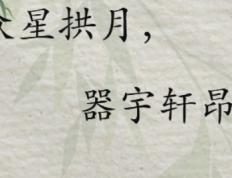 众星拱月，
器宇轩昂